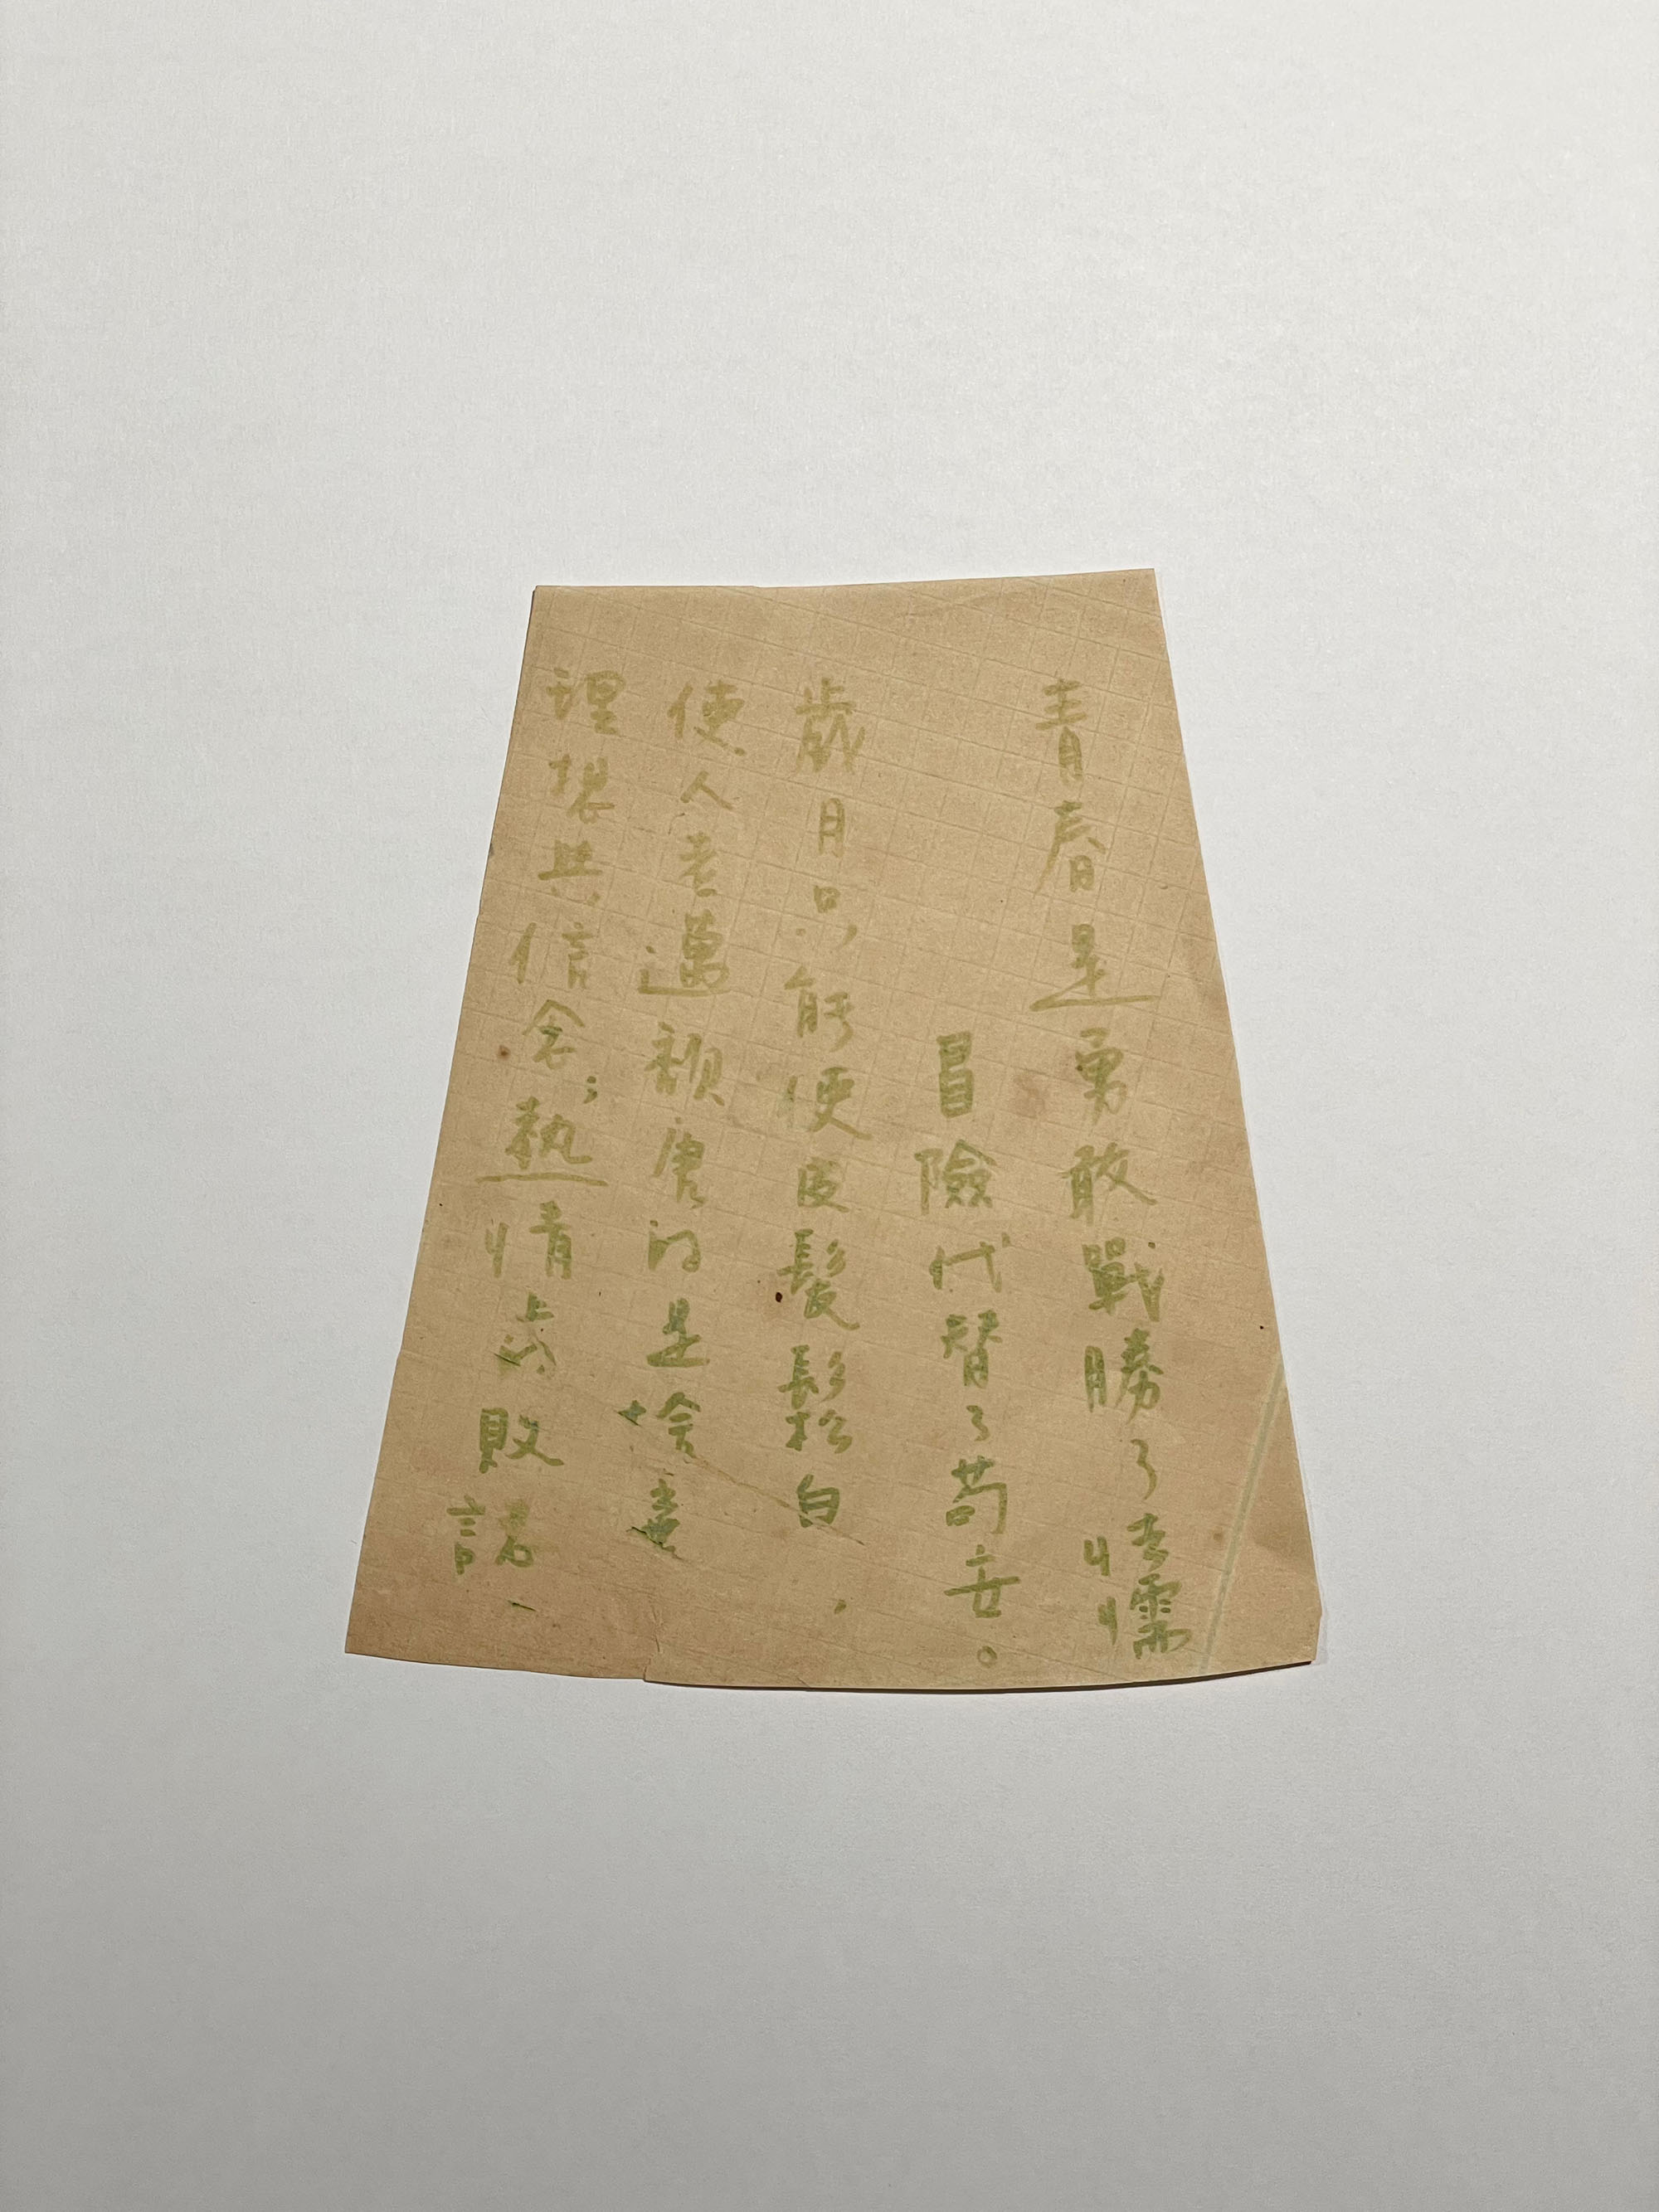 青春是勇敢戰勝了怯懦
冒險代替了苟安。
歲月只能使皮髮鬆白，
使人老邁頹唐的是捨棄
理想與信念；熱情敗諾、